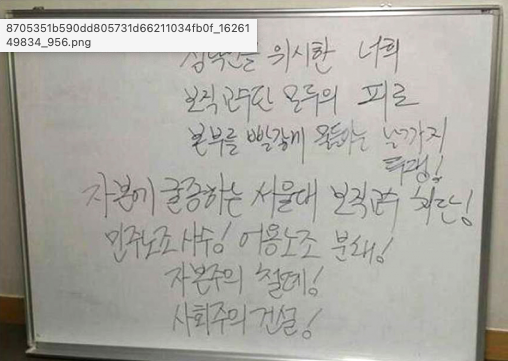 8705351b590dd805731d66211034fb0f_16261
49834_956.png
위시한 너희
보직교수단 모두의 피로
본부를 빨갛게 물들이는 날까지
투쟁!
자본에 굴종하는 서울대 보직교수 처단!
민주노조 사수! 어용노조 분쇄!
자본주의 철폐!
사회주의 건설!